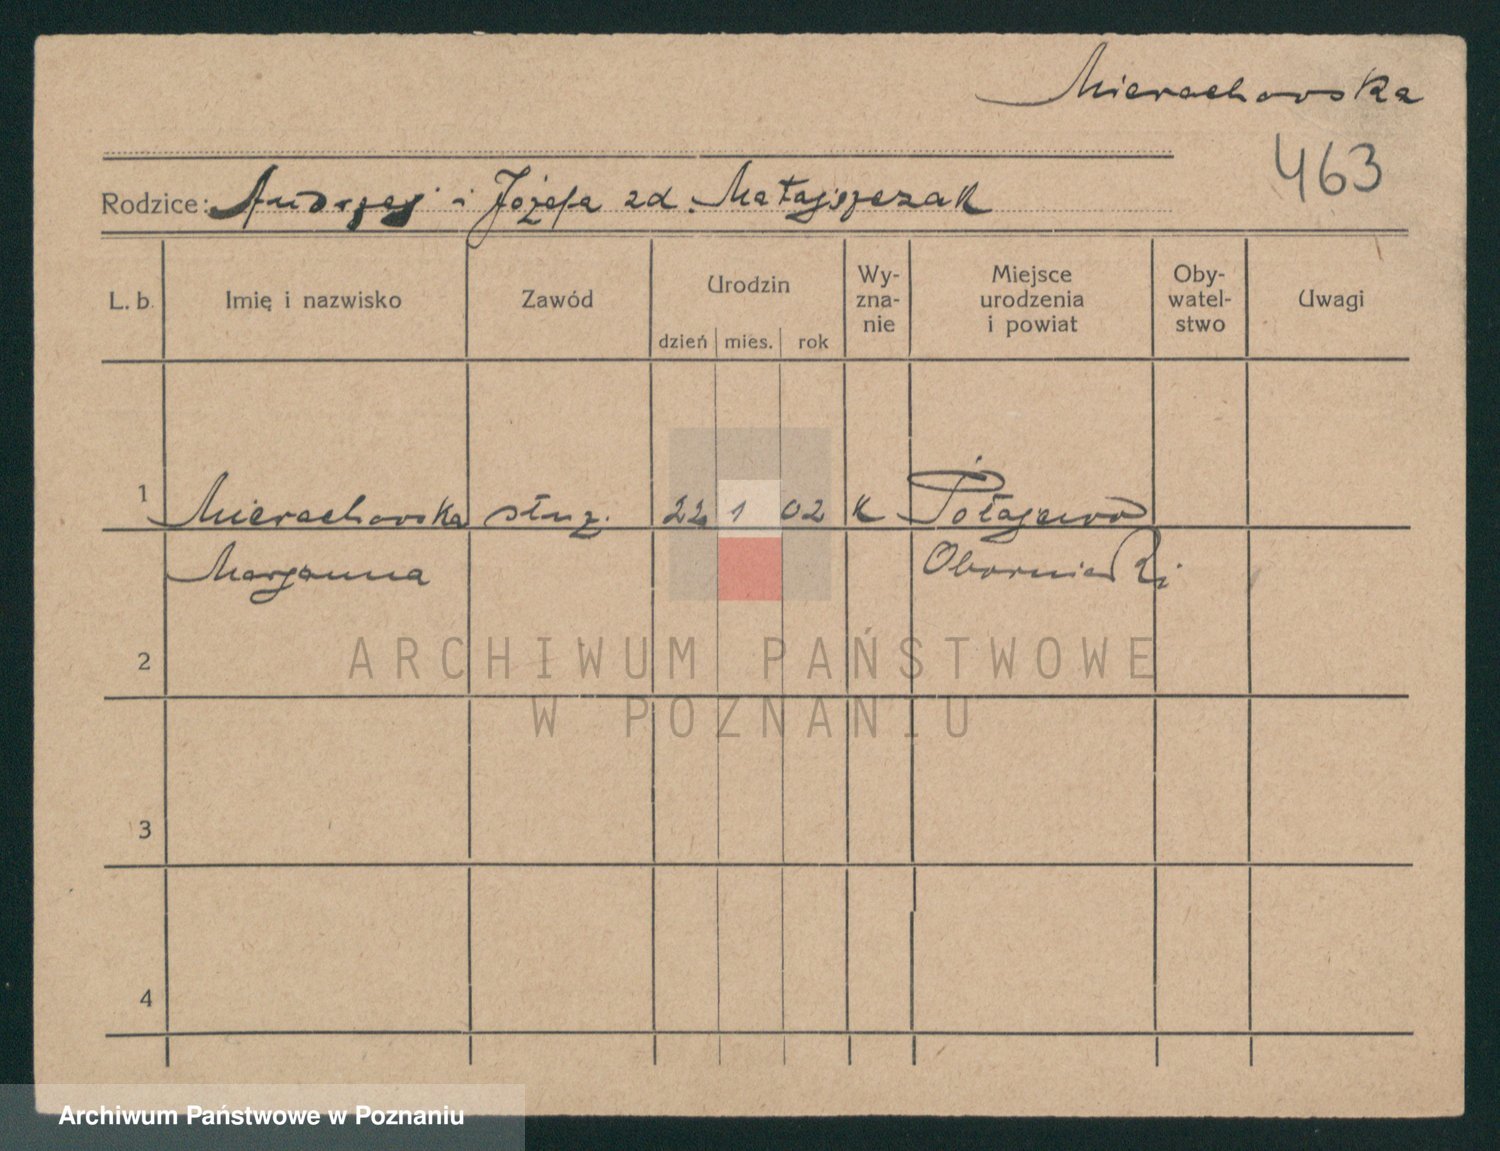 Mierachowska
463
Rodzice: Andrzej i Józefa zd. Matajszczak
L. b. Imię i nazwisko Zawód Urodzin dzień mies. rok Wy-zna-nie Miejsce urodzenia i powiat Oby-watel-stwo Uwagi
1 Mierachowska służ. 22 1 02 k Połajewo
Maryanna Obornicki
2
3
4
ARCHIWUM PAŃSTWOWE
W POZNANIU
Archiwum Państwowe w Poznaniu